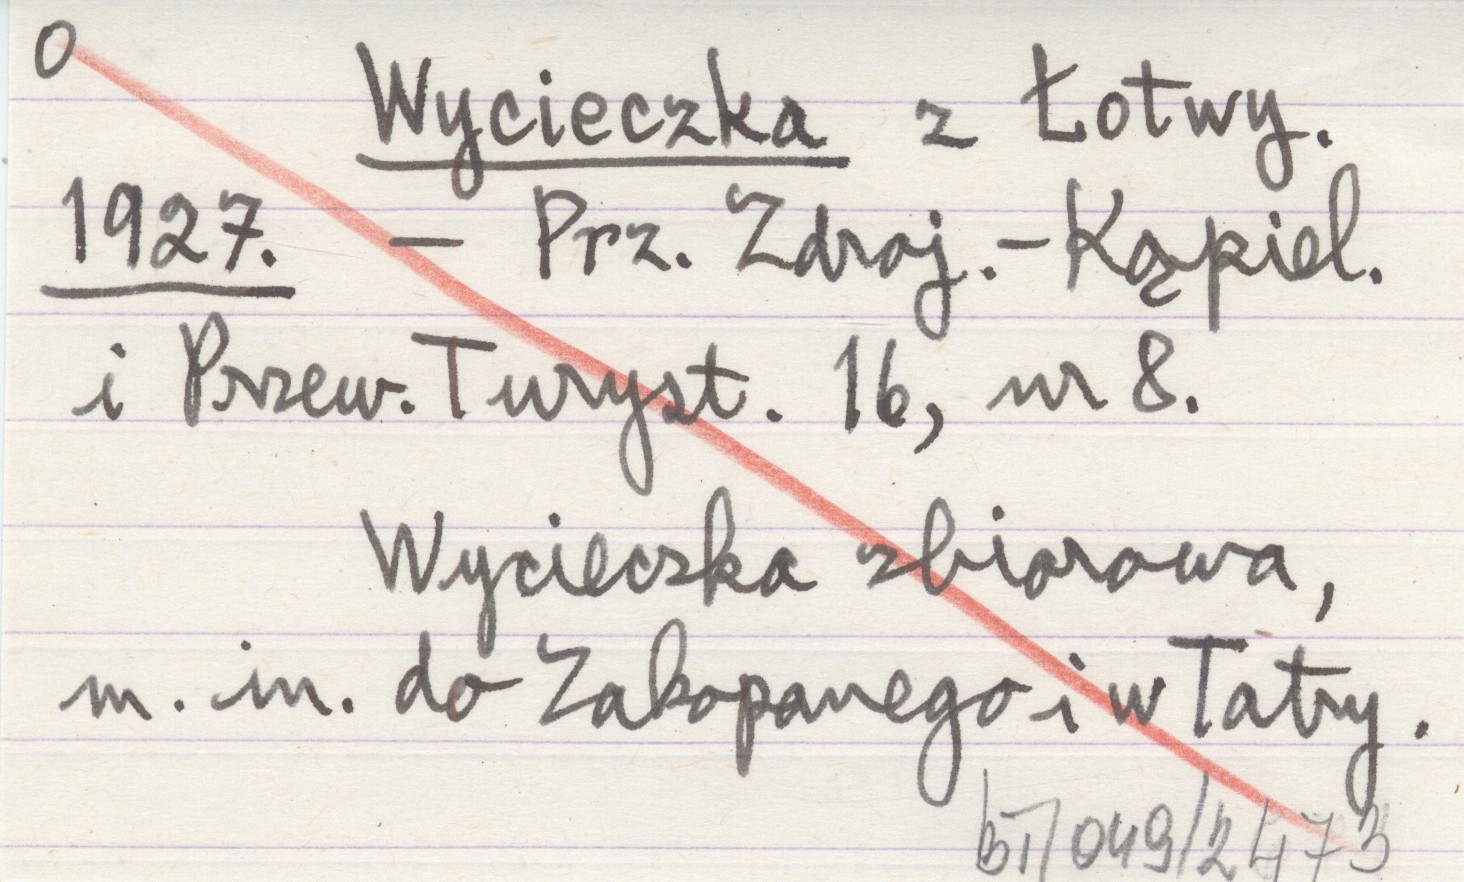 O
Wycieczka z Łotwy.
1927. — Prz. Zdroj.-Kąpiel.
i Przew. Turyst. 16, nr 8.
Wycieczka zbiorowa,
m. in. do Zakopanego i w Tatry.
bT/049/2473